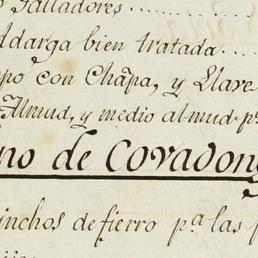 Talladores....
ddarga bien tratada....
po con Chápa, y Llave
Almud, y medio almud pa
no de Covadon
inchos de fierro pa. las